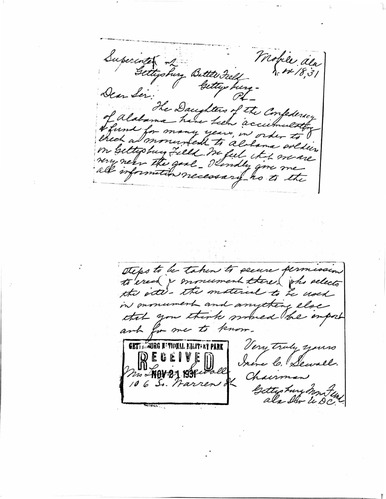 Mobile, Ala
Nov 18, 31
Superinten of
Gettysburg Battle Field
Gettysburg
Pa
Dear Sir:
The Daughters of the Confederacy
of Alabama have been accumulating
a fund for many years, in order to
erect a monument to Alabama soldiers
on Gettysburg Field. We feel that we are
very near the goal. Kindly give me
all information necessary as to the
steps to be taken to secure permission
to erect a monument there, who selects
the site - the material to be used
in monument and anything else
that you think would be import
ant for me to know.
Very truly yours
Irene C. Sewall
Chairman
Gettysburg Mon Fund
Ala Div U.D.C.
GETTYSBURG NATIONAL MILITARY PARK
RECEIVED
NOV 21 1931
Sewall
106 So. Warren St